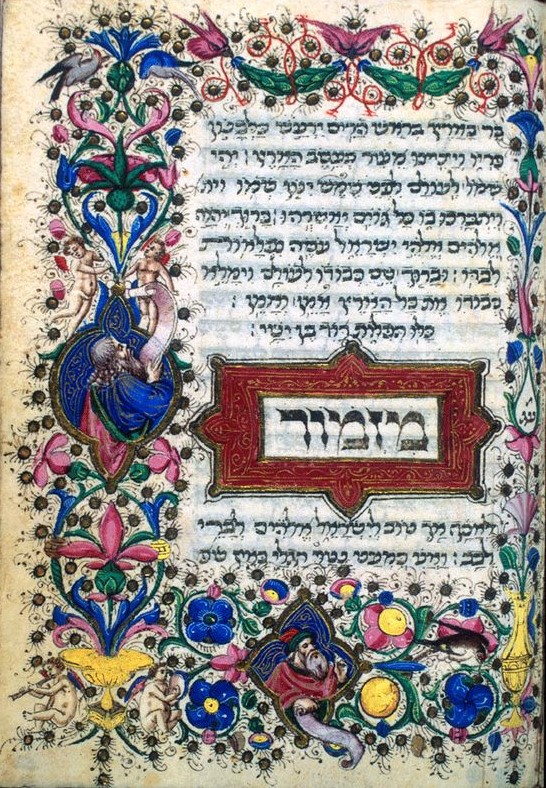 בר בארץ בראש הרים ירעש כלבנון
פריו ויציצו מעיר כעשב הארץ: יהי
שמו לעולם לפני שמש ינון שמו וית
ויתברכו בו כל גוים יאשרוהו: ברוך יהוה
אלהים אלהי ישראל עשה נפלאות
לבדו: וברוך שם כבודו לעולם וימלא
כבודו את כל הארץ אמן ואמן:
כלו תפלות דוד בן ישי:
מזמור
עג
לאסף אך טוב לישראל אלהים לברי
לבב: ואני כמעט נטיו רגלי כאין